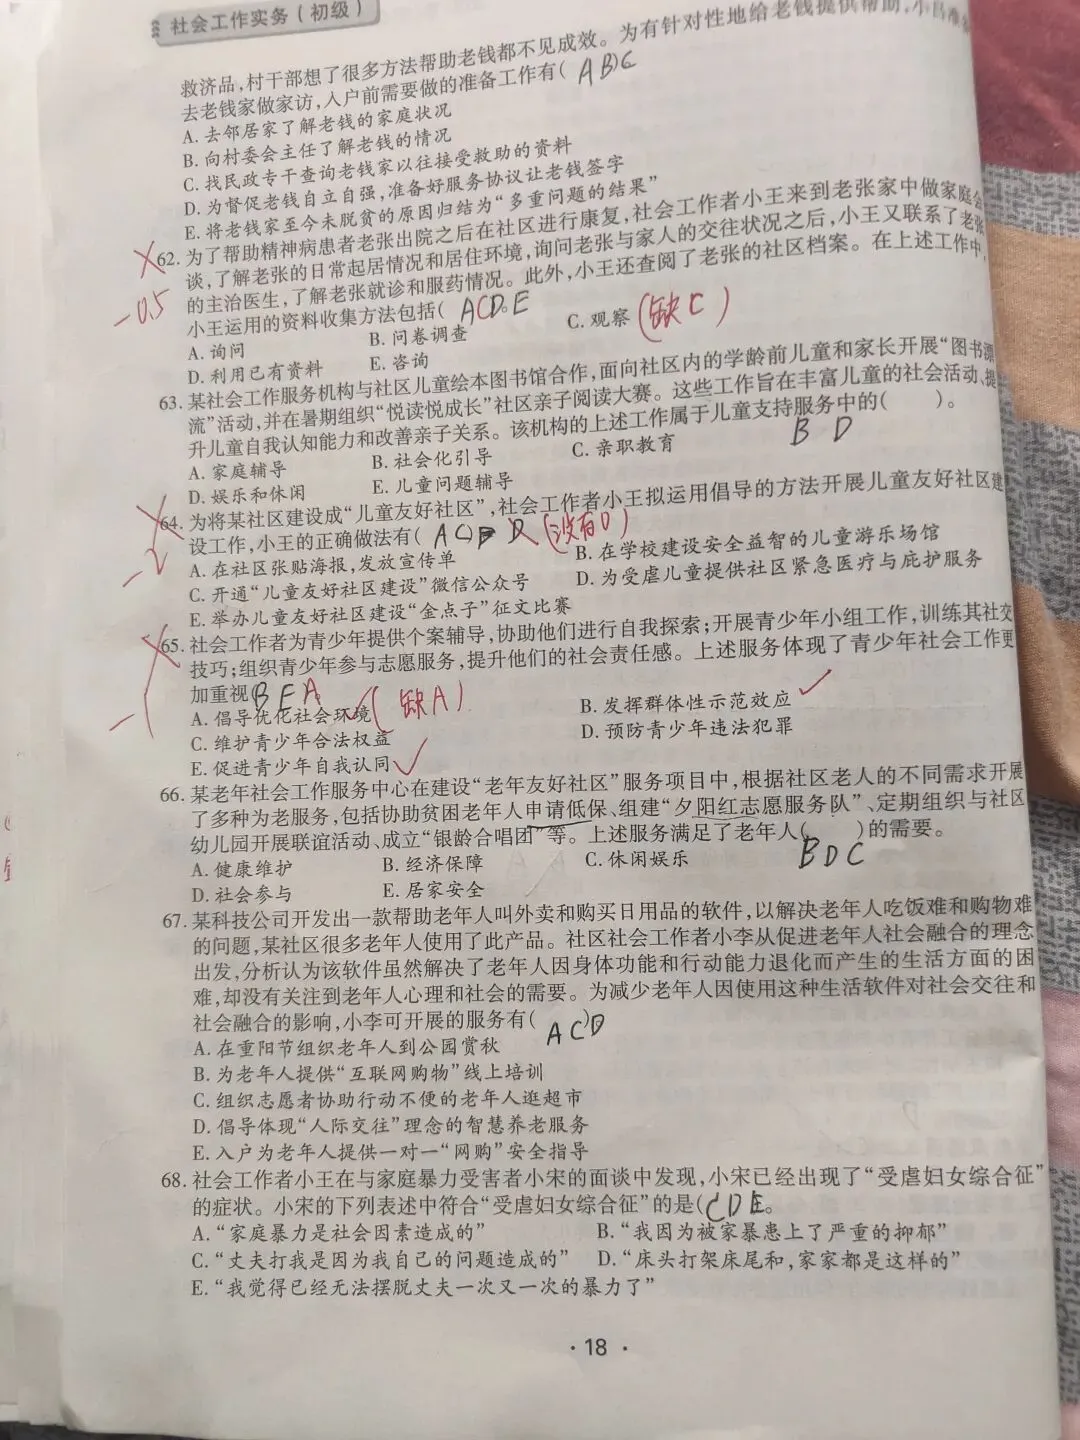 社会工作实务(初级)
救济品,村干部想了很多方法帮助老钱都不见成效。为有针对性地给老钱提供帮助,小
去老钱家做家访,入户前需要做的准备工作有( ABC
A. 去邻居家了解老钱的家庭状况
B. 向村委会主任了解老钱的情况
C. 找民政专干查询老钱家以往接受救助的资料
D. 为督促老钱自立自强,准备好服务协议让老钱签字
E. 将老钱家至今未脱贫的原因归结为“多重问题的结果”
62. 为了帮助精神病患者老张出院之后在社区进行康复,社会工作者小王来到老张家中做家庭会
谈,了解老张的日常起居情况和居住环境,询问老张与家人的交往状况之后,小王又联系了老张
的主治医生,了解老张就诊和服药情况。此外,小王还查阅了老张的社区档案。在上述工作中,
-0.5
小王运用的资料收集方法包括( ACD.E
A. 询问 B. 问卷调查 C. 观察 (缺C)
D. 利用已有资料 E. 咨询
63. 某社会工作服务机构与社区儿童绘本图书馆合作,面向社区内的学龄前儿童和家长开展“图书漂
流”活动,并在暑期组织“悦读悦成长”社区亲子阅读大赛。这些工作旨在丰富儿童的社会活动、提
升儿童自我认知能力和改善亲子关系。该机构的上述工作属于儿童支持服务中的( )。
B D
A. 家庭辅导 B. 社会化引导 C. 亲职教育
D. 娱乐和休闲 E. 儿童问题辅导
64. 为将某社区建设成“儿童友好社区”,社会工作者小王拟运用倡导的方法开展儿童友好社区建
设工作,小王的正确做法有( AC D (没有D)
-2
A. 在社区张贴海报,发放宣传单 B. 在学校建设安全益智的儿童游乐场馆
C. 开通“儿童友好社区建设”微信公众号 D. 为受虐儿童提供社区紧急医疗与庇护服务
E. 举办儿童友好社区建设“金点子”征文比赛
65. 社会工作者为青少年提供个案辅导,协助他们进行自我探索;开展青少年小组工作,训练其社交
技巧;组织青少年参与志愿服务,提升他们的社会责任感。上述服务体现了青少年社会工作更
加重视( B E A (缺A)
-1
A. 倡导优化社会环境 B. 发挥群体性示范效应
C. 维护青少年合法权益 D. 预防青少年违法犯罪
E. 促进青少年自我认同
66. 某老年社会工作服务中心在建设“老年友好社区”服务项目中,根据社区老人的不同需求开展
了多种为老服务,包括协助贫困老年人申请低保、组建“夕阳红志愿服务队”、定期组织与社区
幼儿园开展联谊活动、成立“银龄合唱团”等。上述服务满足了老年人( )的需要。
BDC
A. 健康维护 B. 经济保障 C. 休闲娱乐
D. 社会参与 E. 居家安全
67. 某科技公司开发出一款帮助老年人叫外卖和购买日用品的软件,以解决老年人吃饭难和购物难
的问题,某社区很多老年人使用了此产品。社区社会工作者小李从促进老年人社会融合的理念
出发,分析认为该软件虽然解决了老年人因身体功能和行动能力退化而产生的生活方面的困
难,却没有关注到老年人心理和社会的需要。为减少老年人因使用这种生活软件对社会交往和
社会融合的影响,小李可开展的服务有( )。
ACD
A. 在重阳节组织老年人到公园赏秋
B. 为老年人提供“互联网购物”线上培训
C. 组织志愿者协助行动不便的老年人逛超市
D. 倡导体现“人际交往”理念的智慧养老服务
E. 入户为老年人提供一对一“网购”安全指导
68. 社会工作者小王在与家庭暴力受害者小宋的面谈中发现,小宋已经出现了“受虐妇女综合征”
的症状。小宋的下列表述中符合“受虐妇女综合征”的是( CDE 。
A. “家庭暴力是社会因素造成的” B. “我因为被家暴患上了严重的抑郁”
C. “丈夫打我是因为我自己的问题造成的” D. “床头打架床尾和,家家都是这样的”
E. “我觉得已经无法摆脱丈夫一次又一次的暴力了”
· 18 ·